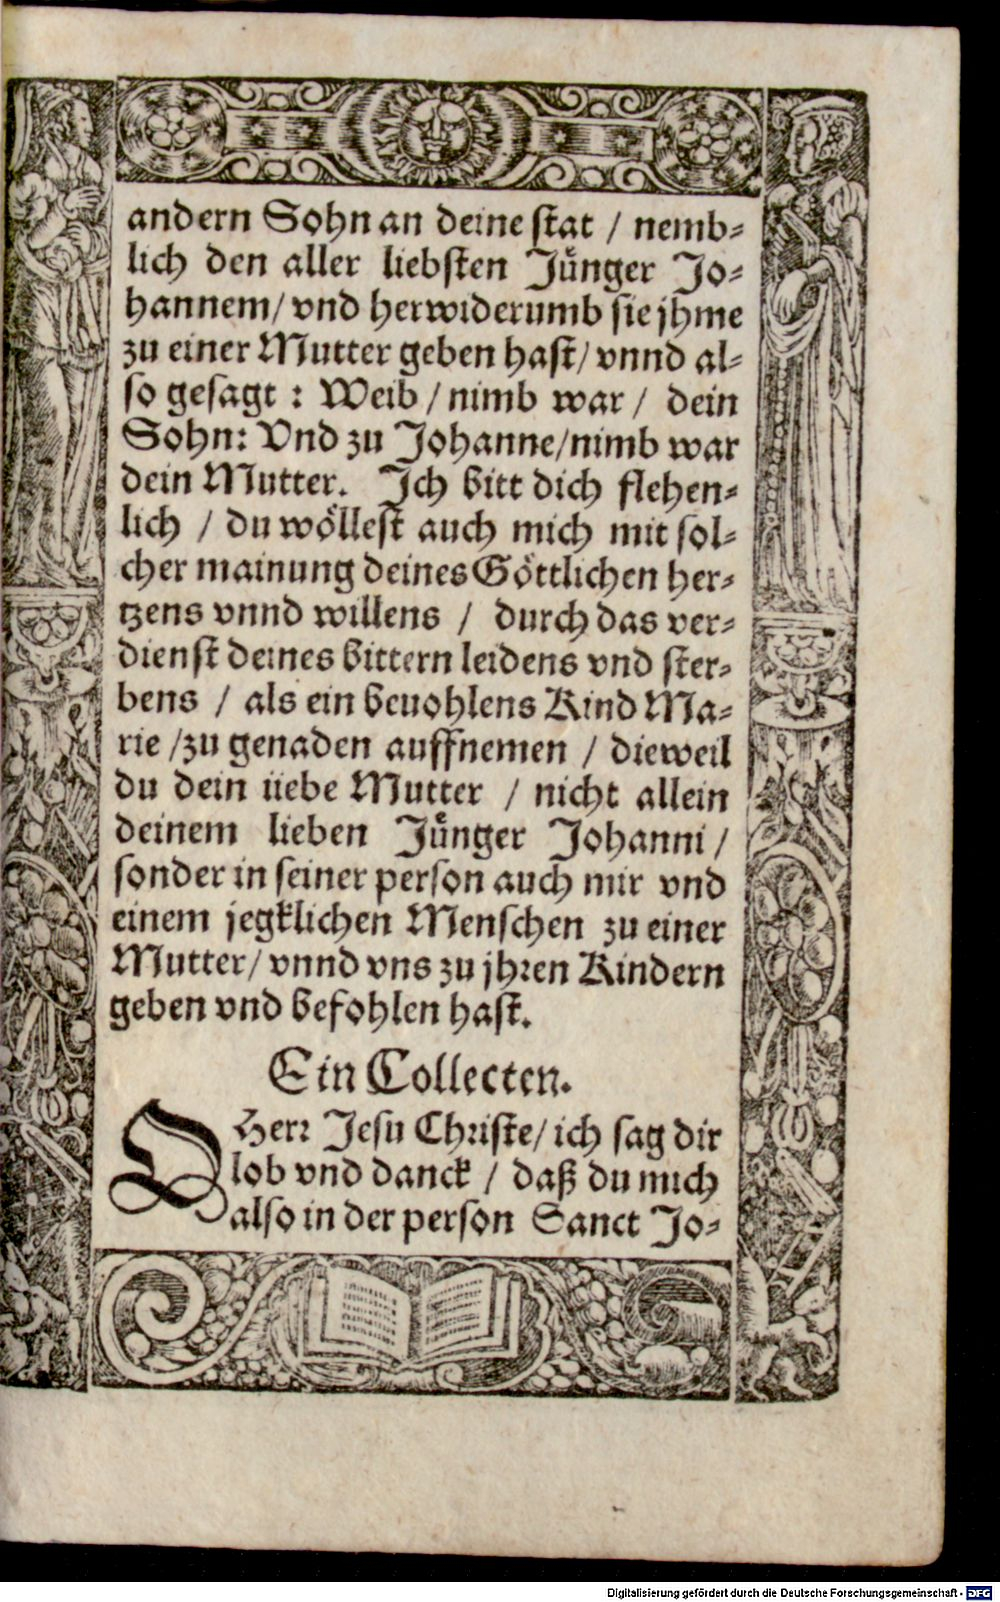 andern Sohn an deine stat / nemb-
lich den aller liebsten Jünger Jo-
hannem/ vnd herwiderumb sie jhme
zu einer Mutter geben hast/ vnnd al-
so gesagt : Weib / nimb war / dein
Sohn: Vnd zu Johanne/nimb war
dein Mutter. Ich bitt dich flehen-
lich / du wöllest auch mich mit sol-
cher mainung deines Göttlichen her-
tzens vnnd willens / durch das ver-
dienst deines bittern leidens vnd ster-
bens / als ein beuohlens Kind Ma-
rie /zu genaden auffnemen / dieweil
du dein liebe Mutter / nicht allein
deinem lieben Jünger Johanni /
sonder in seiner person auch mir vnd
einem jegklichen Menschen zu einer
Mutter/ vnnd vns zu jhren Kindern
geben vnd befohlen hast.
Ein Collecten.
O Herr Jesu Christe/ ich sag dir
lob vnd danck / daß du mich
also in der person Sanct Jo-
Digitalisierung gefördert durch die Deutsche Forschungsgemeinschaft - DFG